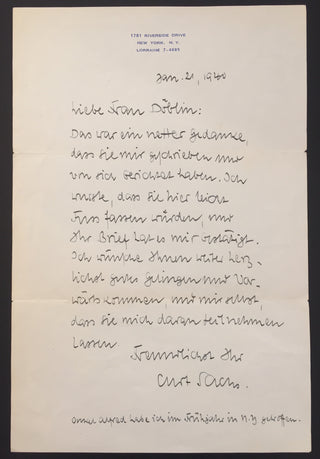 1781 RIVERSIDE DRIVE
NEW YORK, N. Y.
LORRAINE 7-4695
Jan. 21, 1940
Liebe Frau Döblin:
Das war ein netter Gedanke,
dass Sie mir geschrieben und
von sich berichtet haben. Ich
wusste, dass Sie hier leicht
Fuss fassen würden, und
Ihr Brief hat es mir bestätigt.
Ich wünsche Ihnen weiter herz-
lichst gutes Gelingen und Vor-
wärtskommen, und mir selbst,
dass Sie mich daran teilnehmen
lassen.
Freundlichst Ihr
Curt Sachs.
Onkel Alfred habe ich im Frühjahr in N.Y. getroffen.